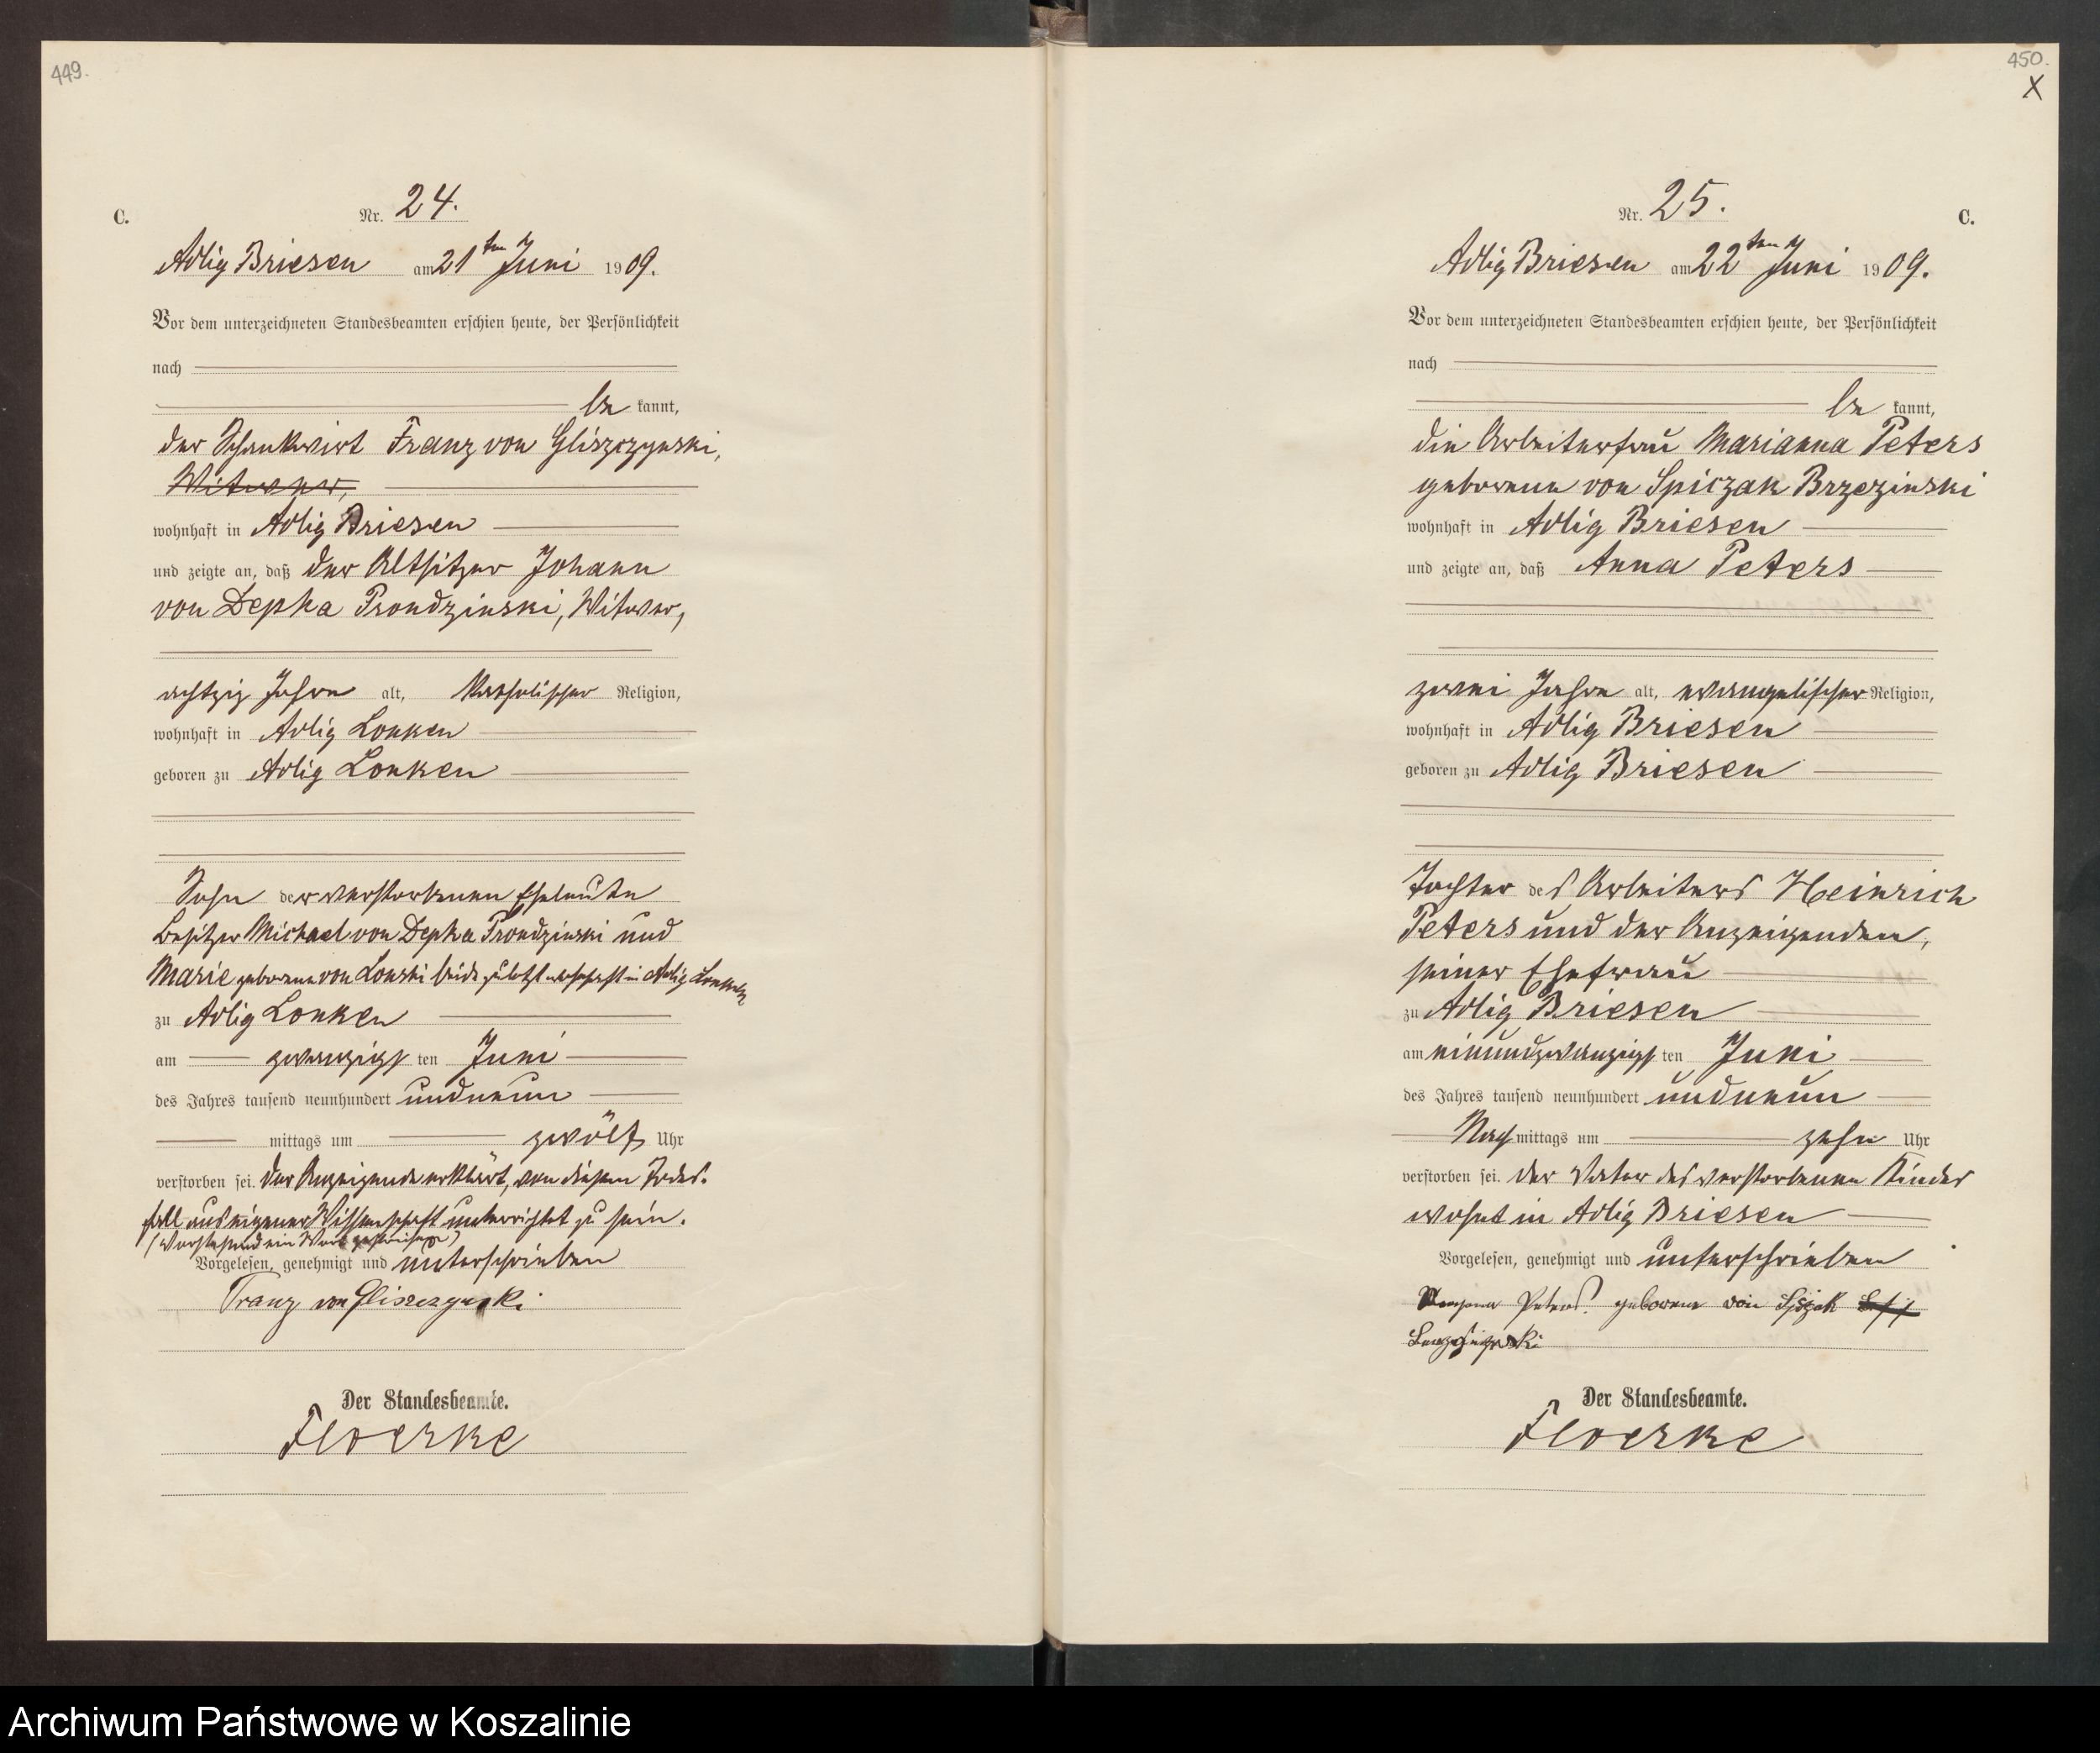 449.
C.
Nr. 24.
Adlig Briesen am 21ten Juni 1909.
Vor dem unterzeichneten Standesbeamten erschien heute, der Persönlichkeit
nach
be kannt,
der Schankwirt Franz von Gliszczynski,
Witwer,
wohnhaft in Adlig Briesen
und zeigte an, daß der Altsitzer Johann
von Depka Prondzinski, Witwer,
achtzig Jahre alt, katholischer Religion,
wohnhaft in Adlig Lonken
geboren zu Adlig Lonken
Sohn der verstorbenen Eheleute
Besitzer Michael von Depka Prondzinski und
Marie geborene von Lonski beide zuletzt wohnhaft in Adlig Lonken
zu Adlig Lonken
am zwanzigs ten Juni
des Jahres tausend neunhundert undneun
mittags um zwölf Uhr
verstorben sei. Der Anzeigende erklärt, von diesem Todes-
fall aus eigener Wissenschaft unterrichtet zu sein.
(Vorstehend ein Wort gestrichen)
Vorgelesen, genehmigt und unterschrieben
Franz von Gliszczynski
Der Standesbeamte.
Floerke
450.
X
Nr. 25.
C.
Adlig Briesen am 22ten Juni 1909.
Vor dem unterzeichneten Standesbeamten erschien heute, der Persönlichkeit
nach
be kannt,
die Arbeiterfrau Marianna Peters
geborene von Spiczak Brzezinski
wohnhaft in Adlig Briesen
und zeigte an, daß Anna Peters
zwei Jahre alt, evangelischer Religion,
wohnhaft in Adlig Briesen
geboren zu Adlig Briesen
Tochter des Arbeiters Heinrich
Peters und der Anzeigenden,
seiner Ehefrau
zu Adlig Briesen
am einundzwanzigs ten Juni
des Jahres tausend neunhundert undneun
Nach mittags um zehn Uhr
verstorben sei. Der Vater des verstorbenen Kindes
wohnt in Adlig Briesen
Vorgelesen, genehmigt und unterschrieben
Peters. geborene von
Der Standesbeamte.
Floerke
Archiwum Państwowe w Koszalinie